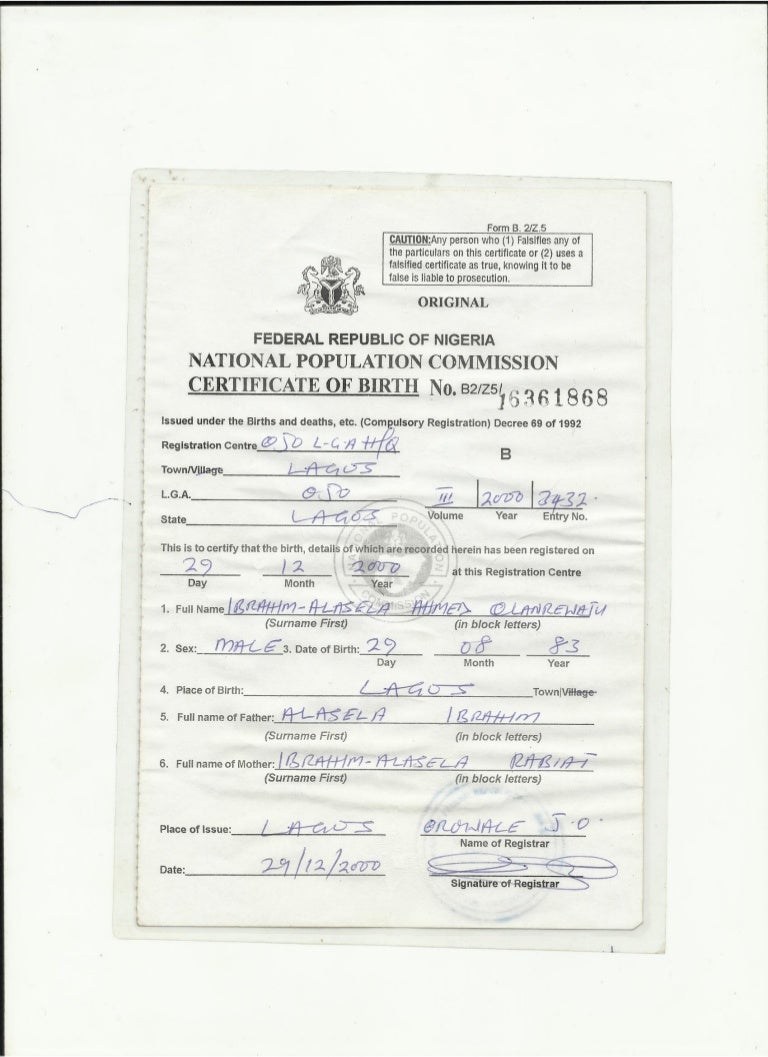 Form B. 2/Z.5
CAUTION:Any person who (1) Falsifies any of
the particulars on this certificate or (2) uses a
falsified certificate as true, knowing it to be
false is liable to prosecution.
ORIGINAL
FEDERAL REPUBLIC OF NIGERIA
NATIONAL POPULATION COMMISSION
CERTIFICATE OF BIRTH No. B2/Z5/16361868
Issued under the Births and deaths, etc. (Compulsory Registration) Decree 69 of 1992
Registration Centre OJO L-GA H/Q
B
Town/Village LAGOS
L.G.A. OJO III 2000 3432.
Volume Year Entry No.
State LAGOS
NATIONAL POPULATION COMMISSION
This is to certify that the birth, details of which are recorded herein has been registered on
29 12 2000 at this Registration Centre
Day Month Year
1. Full Name IBRAHIM-ALASELA AHMED OLANREWAJU
(Surname First) (in block letters)
2. Sex: MALE 3. Date of Birth: 29 08 83
Day Month Year
4. Place of Birth: LAGOS Town|Village
5. Full name of Father: ALASELA IBRAHIM
(Surname First) (in block letters)
6. Full name of Mother: IBRAHIM-ALASELA RABIAT
(Surname First) (in block letters)
Place of Issue: LAGOS OROWALE J.O.
Name of Registrar
Date: 29/12/2000
Signature of Registrar